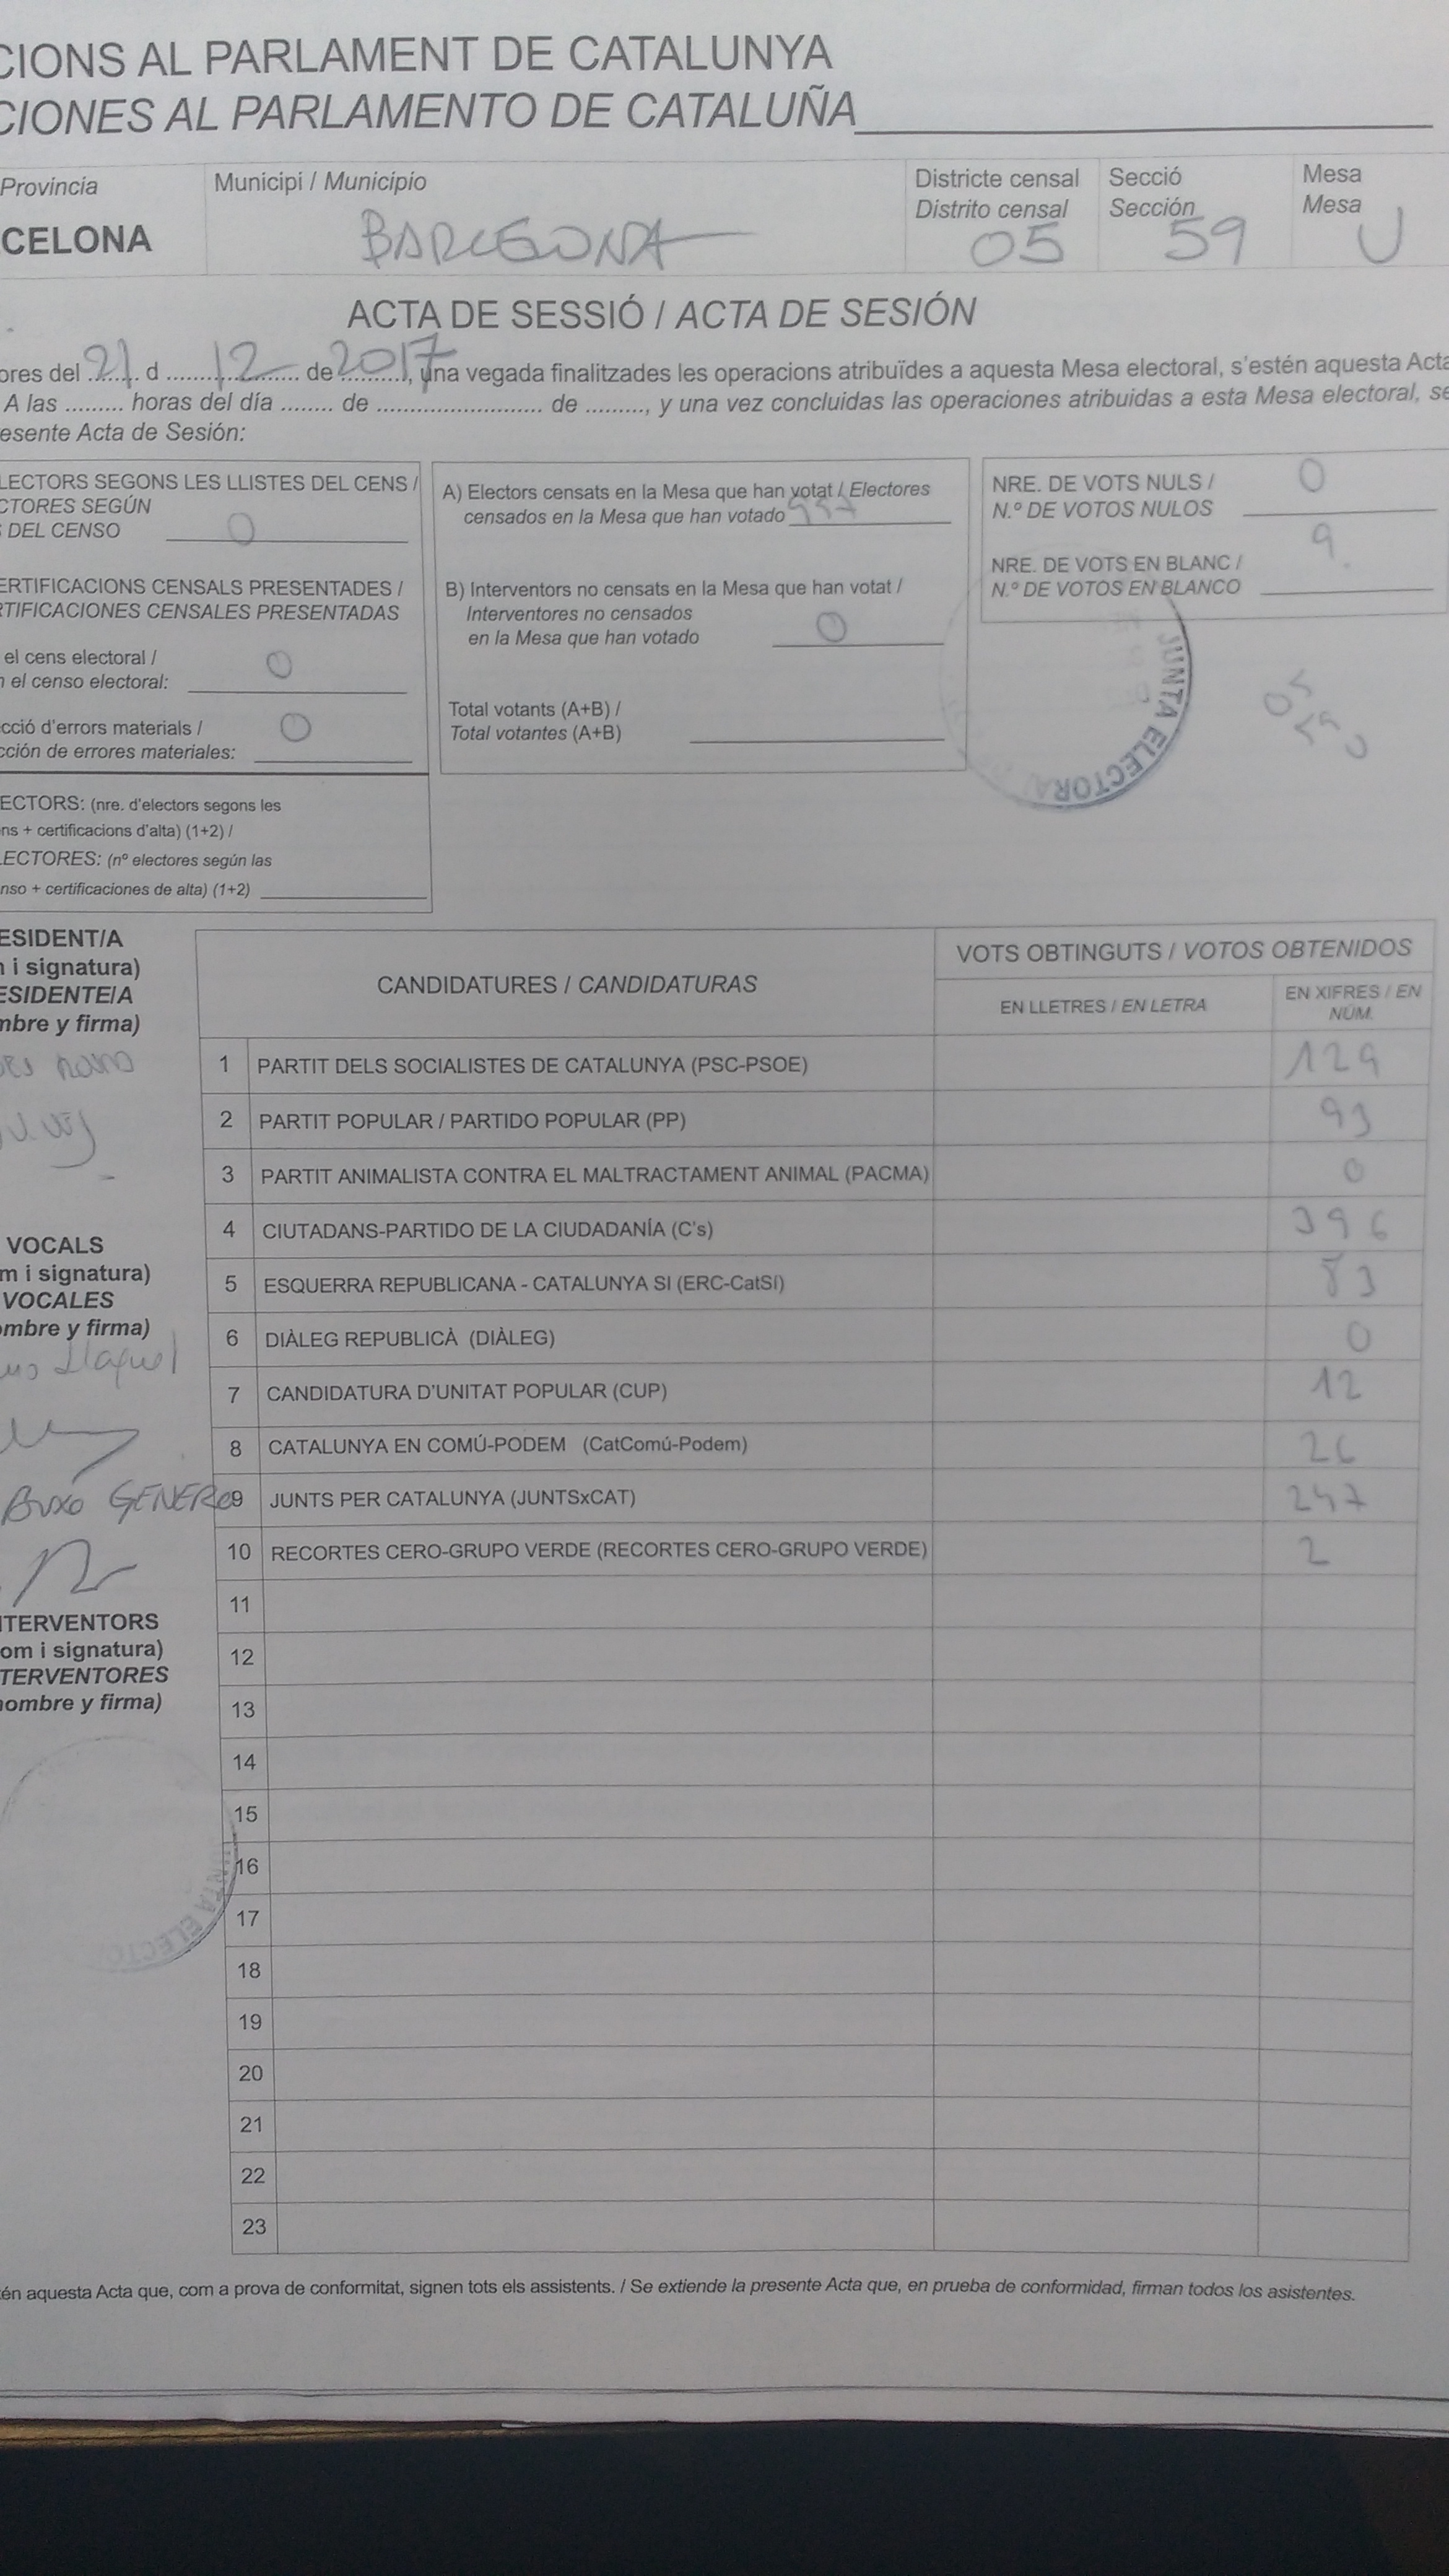 CIONS AL PARLAMENT DE CATALUNYA
CIONES AL PARLAMENTO DE CATALUÑA
Provincia
CELONA
Municipi / Municipio
BARCELONA
Districte censal
Distrito censal
05
Secció
Sección
59
Mesa
Mesa
U
ACTA DE SESSIÓ / ACTA DE SESIÓN
ores del 21 d 12 de 2017, una vegada finalitzades les operacions atribuïdes a aquesta Mesa electoral, s'estén aquesta Acta
A las ......... horas del día ........ de ........................ de ........., y una vez concluidas las operaciones atribuidas a esta Mesa electoral, se
esente Acta de Sesión:
LECTORS SEGONS LES LLISTES DEL CENS /
CTORES SEGÚN
DEL CENSO 0
ERTIFICACIONS CENSALS PRESENTADES /
RTIFICACIONES CENSALES PRESENTADAS
el cens electoral /
n el censo electoral: 0
cció d'errors materials /
cción de errores materiales: 0
ECTORS: (nre. d'electors segons les
ns + certificacions d'alta) (1+2) /
LECTORES: (nº electores según las
nso + certificaciones de alta) (1+2)
A) Electors censats en la Mesa que han votat / Electores
censados en la Mesa que han votado 997
B) Interventors no censats en la Mesa que han votat /
Interventores no censados
en la Mesa que han votado 0
Total votants (A+B) /
Total votantes (A+B)
NRE. DE VOTS NULS /
N.º DE VOTOS NULOS 0
NRE. DE VOTS EN BLANC /
N.º DE VOTOS EN BLANCO 9
JUNTA ELECTORAL
05
59 U
ESIDENT/A
i signatura)
ESIDENTE/A
mbre y firma)
VOCALS
m i signatura)
VOCALES
ombre y firma)
Buxo GENERO
TERVENTORS
om i signatura)
TERVENTORES
nombre y firma)
JUNTA ELECTO
CANDIDATURES / CANDIDATURAS
VOTS OBTINGUTS / VOTOS OBTENIDOS
EN LLETRES / EN LETRA
EN XIFRES / EN
NÚM.
1 PARTIT DELS SOCIALISTES DE CATALUNYA (PSC-PSOE) 129
2 PARTIT POPULAR / PARTIDO POPULAR (PP) 93
3 PARTIT ANIMALISTA CONTRA EL MALTRACTAMENT ANIMAL (PACMA) 0
4 CIUTADANS-PARTIDO DE LA CIUDADANÍA (C's) 396
5 ESQUERRA REPUBLICANA - CATALUNYA SI (ERC-CatSí) 83
6 DIÀLEG REPUBLICÀ (DIÀLEG) 0
7 CANDIDATURA D'UNITAT POPULAR (CUP) 12
8 CATALUNYA EN COMÚ-PODEM (CatComú-Podem) 26
9 JUNTS PER CATALUNYA (JUNTSxCAT) 247
10 RECORTES CERO-GRUPO VERDE (RECORTES CERO-GRUPO VERDE) 2
11
12
13
14
15
16
17
18
19
20
21
22
23
én aquesta Acta que, com a prova de conformitat, signen tots els assistents. / Se extiende la presente Acta que, en prueba de conformidad, firman todos los asistentes.